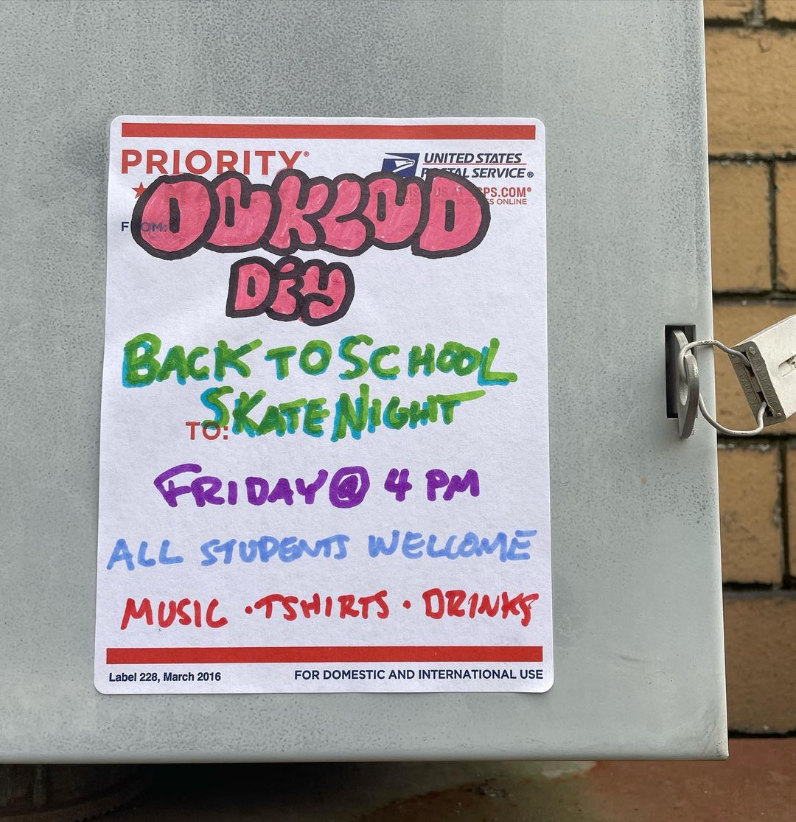 PRIORITY®
UNITED STATES
POSTAL SERVICE®
PS.COM®
ONLINE
FROM:
OAKLAND
DIY
BACK TO SCHOOL
SKATE NIGHT
TO:
FRIDAY @ 4 PM
ALL STUDENTS WELCOME
MUSIC · TSHIRTS · DRINKS
Label 228, March 2016
FOR DOMESTIC AND INTERNATIONAL USE